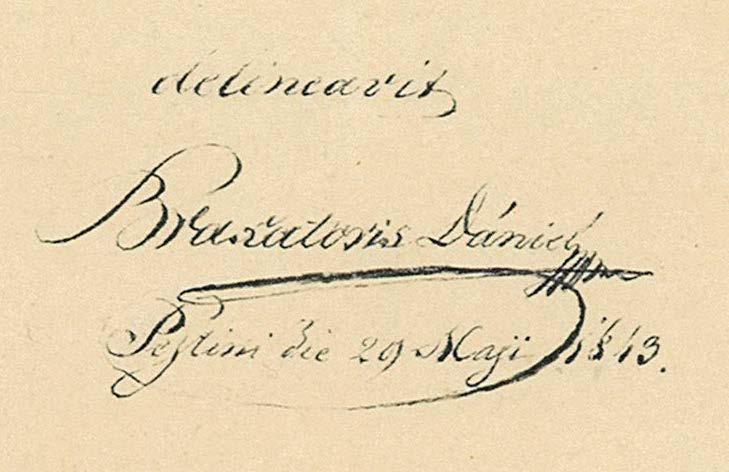 delineavit
Braxatoris Dániel
Pestini die 29 Maji 1843.